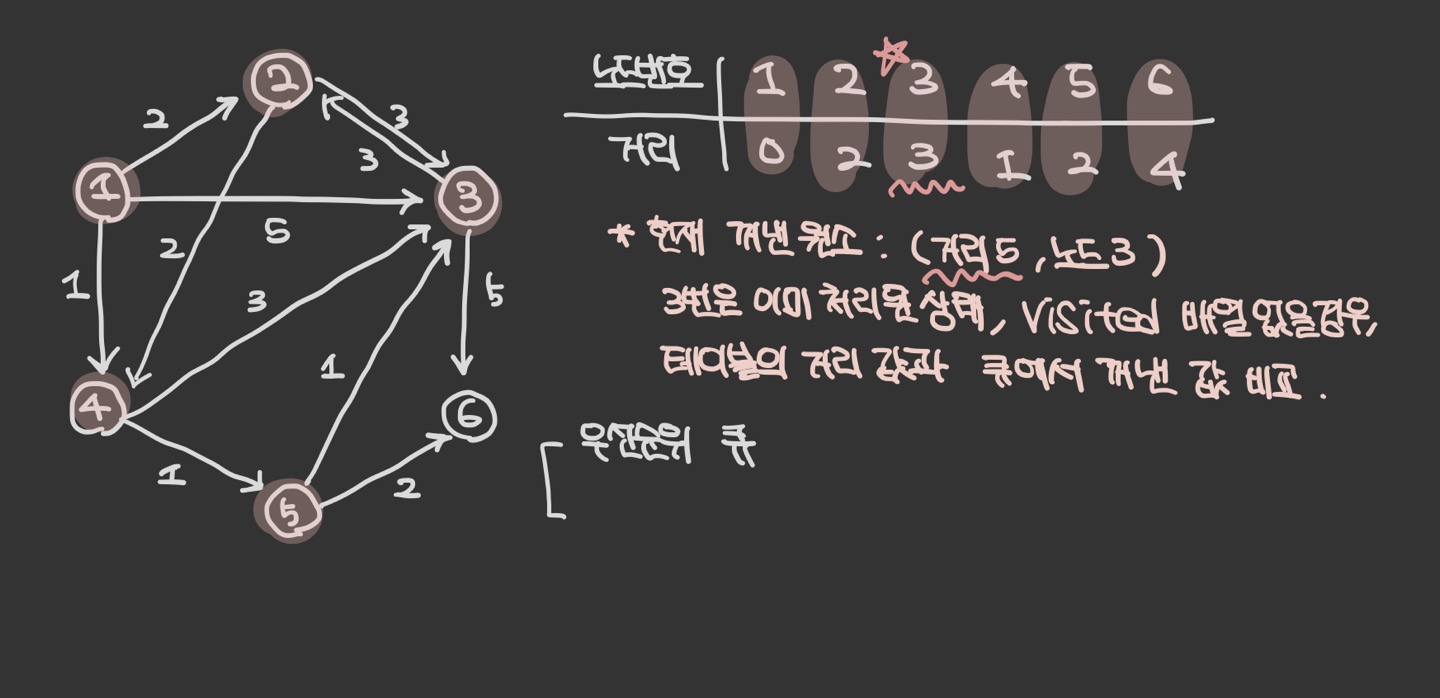 노드번호 1 2 3 4 5 6
거리 0 2 3 1 2 4
* 현재 꺼낸 원소 : (거리 5, 노드 3)
3번은 이미 처리된 상태, visited 배열 없을경우,
테이블의 거리 값과 큐에서 꺼낸 값 비교.
우선순위 큐
2
2
3
3
1
5
3
2
1
3
5
4
6
1
1
2
5